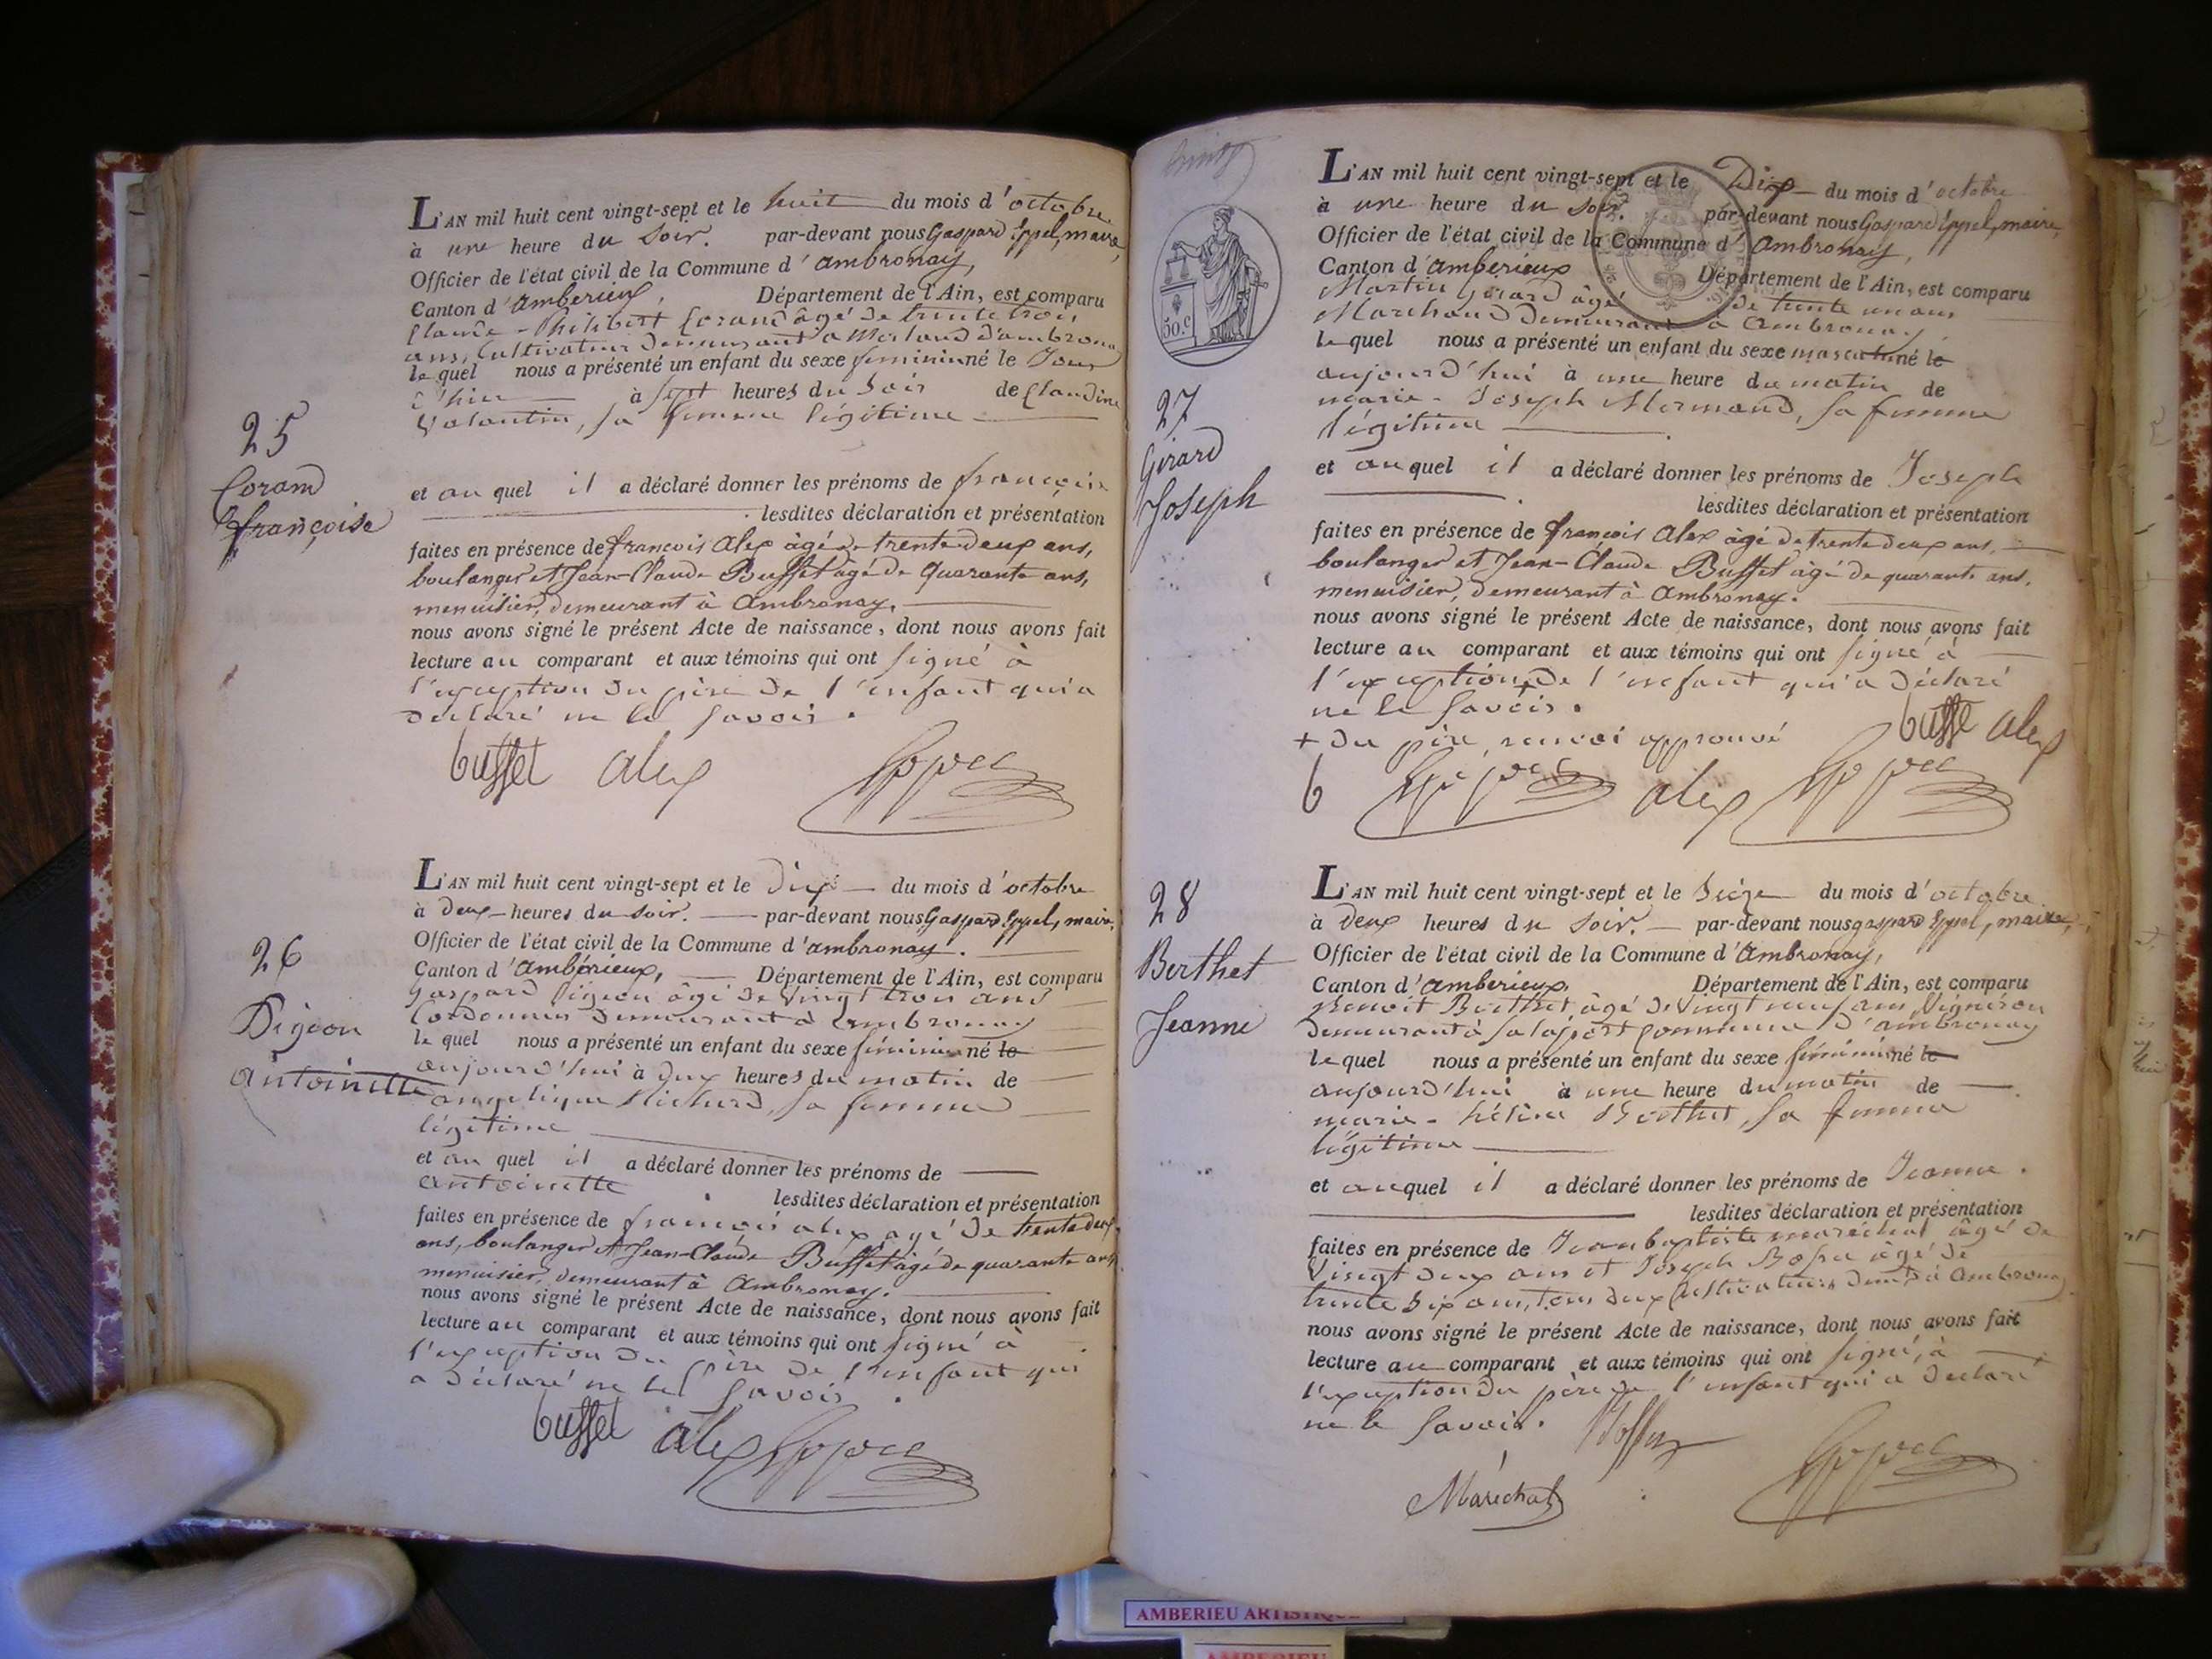 25
Corand
françoise
L'AN mil huit cent vingt-sept et le huit du mois d'octobre
à une heure du Soir. par-devant nous Gaspard Eppel, maire,
Officier de l'état civil de la Commune d'ambronay,
Canton d'amberieux, Département de l'Ain, est comparu
Claude-Philibert Corand âgé de trente trois
ans, Cultivateur demeurant à Merland d'ambronay
lequel nous a présenté un enfant du sexe feminin né le Jour
d'hier à Sept heures du Soir de Claudine
Valantin, sa femme légitime
et auquel il a déclaré donner les prénoms de françoise
lesdites déclaration et présentation
faites en présence de françois alex âgé de trente deux ans,
boulanger et Jean-Claude Buffet âgé de quarante ans,
menuisier, demeurant à Ambronay.
nous avons signé le présent Acte de naissance, dont nous avons fait
lecture au comparant et aux témoins qui ont signé à
l'exception du père de l'enfant qui a
déclaré ne le savoir.
buffet alex Eppel
26
Digeon
antoinette
L'AN mil huit cent vingt-sept et le dix du mois d'octobre
à deux heures du soir. par-devant nous Gaspard Eppel, maire,
Officier de l'état civil de la Commune d'ambronay.
Canton d'Ambérieux, Département de l'Ain, est comparu
Gaspard Digeon âgé de vingt trois ans
Cordonnier demeurant à ambronay
lequel nous a présenté un enfant du sexe féminin né le
aujourd'hui à deux heures du matin de
angelique Richerd, sa femme
légitime
et auquel il a déclaré donner les prénoms de
antoinette lesdites déclaration et présentation
faites en présence de françois alex agé de trente deux
ans, boulanger et Jean-Claude Buffet âgé de quarante ans
menuisier, demeurant à Ambronay.
nous avons signé le présent Acte de naissance, dont nous avons fait
lecture au comparant et aux témoins qui ont signé à
l'exception du père de l'enfant qui
a déclaré ne le savoir.
buffet alex Eppel
50.c
27
Girard
Joseph
L'AN mil huit cent vingt-sept et le Dix du mois d'octobre
à une heure du soir. par-devant nous Gaspard Eppel, maire,
Officier de l'état civil de la Commune d'Ambronay,
Canton d'amberieux Département de l'Ain, est comparu
Martin Girard âgé de trente un ans
Marchand demeurant à ambronay
lequel nous a présenté un enfant du sexe masculin né le
aujourd'hui à une heure du matin de
marie-Joseph Mermand, sa femme
légitime.
et auquel il a déclaré donner les prénoms de Joseph
lesdites déclaration et présentation
faites en présence de françois Alex âgé de trente deux ans,
boulanger et Jean-Claude Buffet âgé de quarante ans,
menuisier, demeurant à Ambronay.
nous avons signé le présent Acte de naissance, dont nous avons fait
lecture au comparant et aux témoins qui ont signé à
l'exception + de l'enfant qui a déclaré
ne le savoir.
+ du père, renvoi approuvé buffe alex
b Eppel alex Eppel
28
Berthet
Jeanne
L'AN mil huit cent vingt-sept et le Seize du mois d'octobre
à deux heures du soir. par-devant nous gaspard Eppel, maire,
Officier de l'état civil de la Commune d'Ambronay,
Canton d'amberieux, Département de l'Ain, est comparu
Benoit Berthet, âgé de vingt neuf ans, Vigneron
demeurant à Salaport Commune d'ambronay
lequel nous a présenté un enfant du sexe féminin né le
aujourd'hui à une heure du matin de
marie-hélène Berthet, sa femme
légitime
et auquel il a déclaré donner les prénoms de Jeanne.
lesdites déclaration et présentation
faites en présence de Jean baptiste maréchal âgé de
Vingt deux ans et Joseph âgé de
trente Six ans, tous deux Cultivateurs demt à ambronay
nous avons signé le présent Acte de naissance, dont nous avons fait
lecture au comparant et aux témoins qui ont signé, à
l'exception du père de l'enfant qui a déclaré
ne le savoir.
Maréchal Eppel
AMBERIEU ARTISTIQUE
AMBERIEU